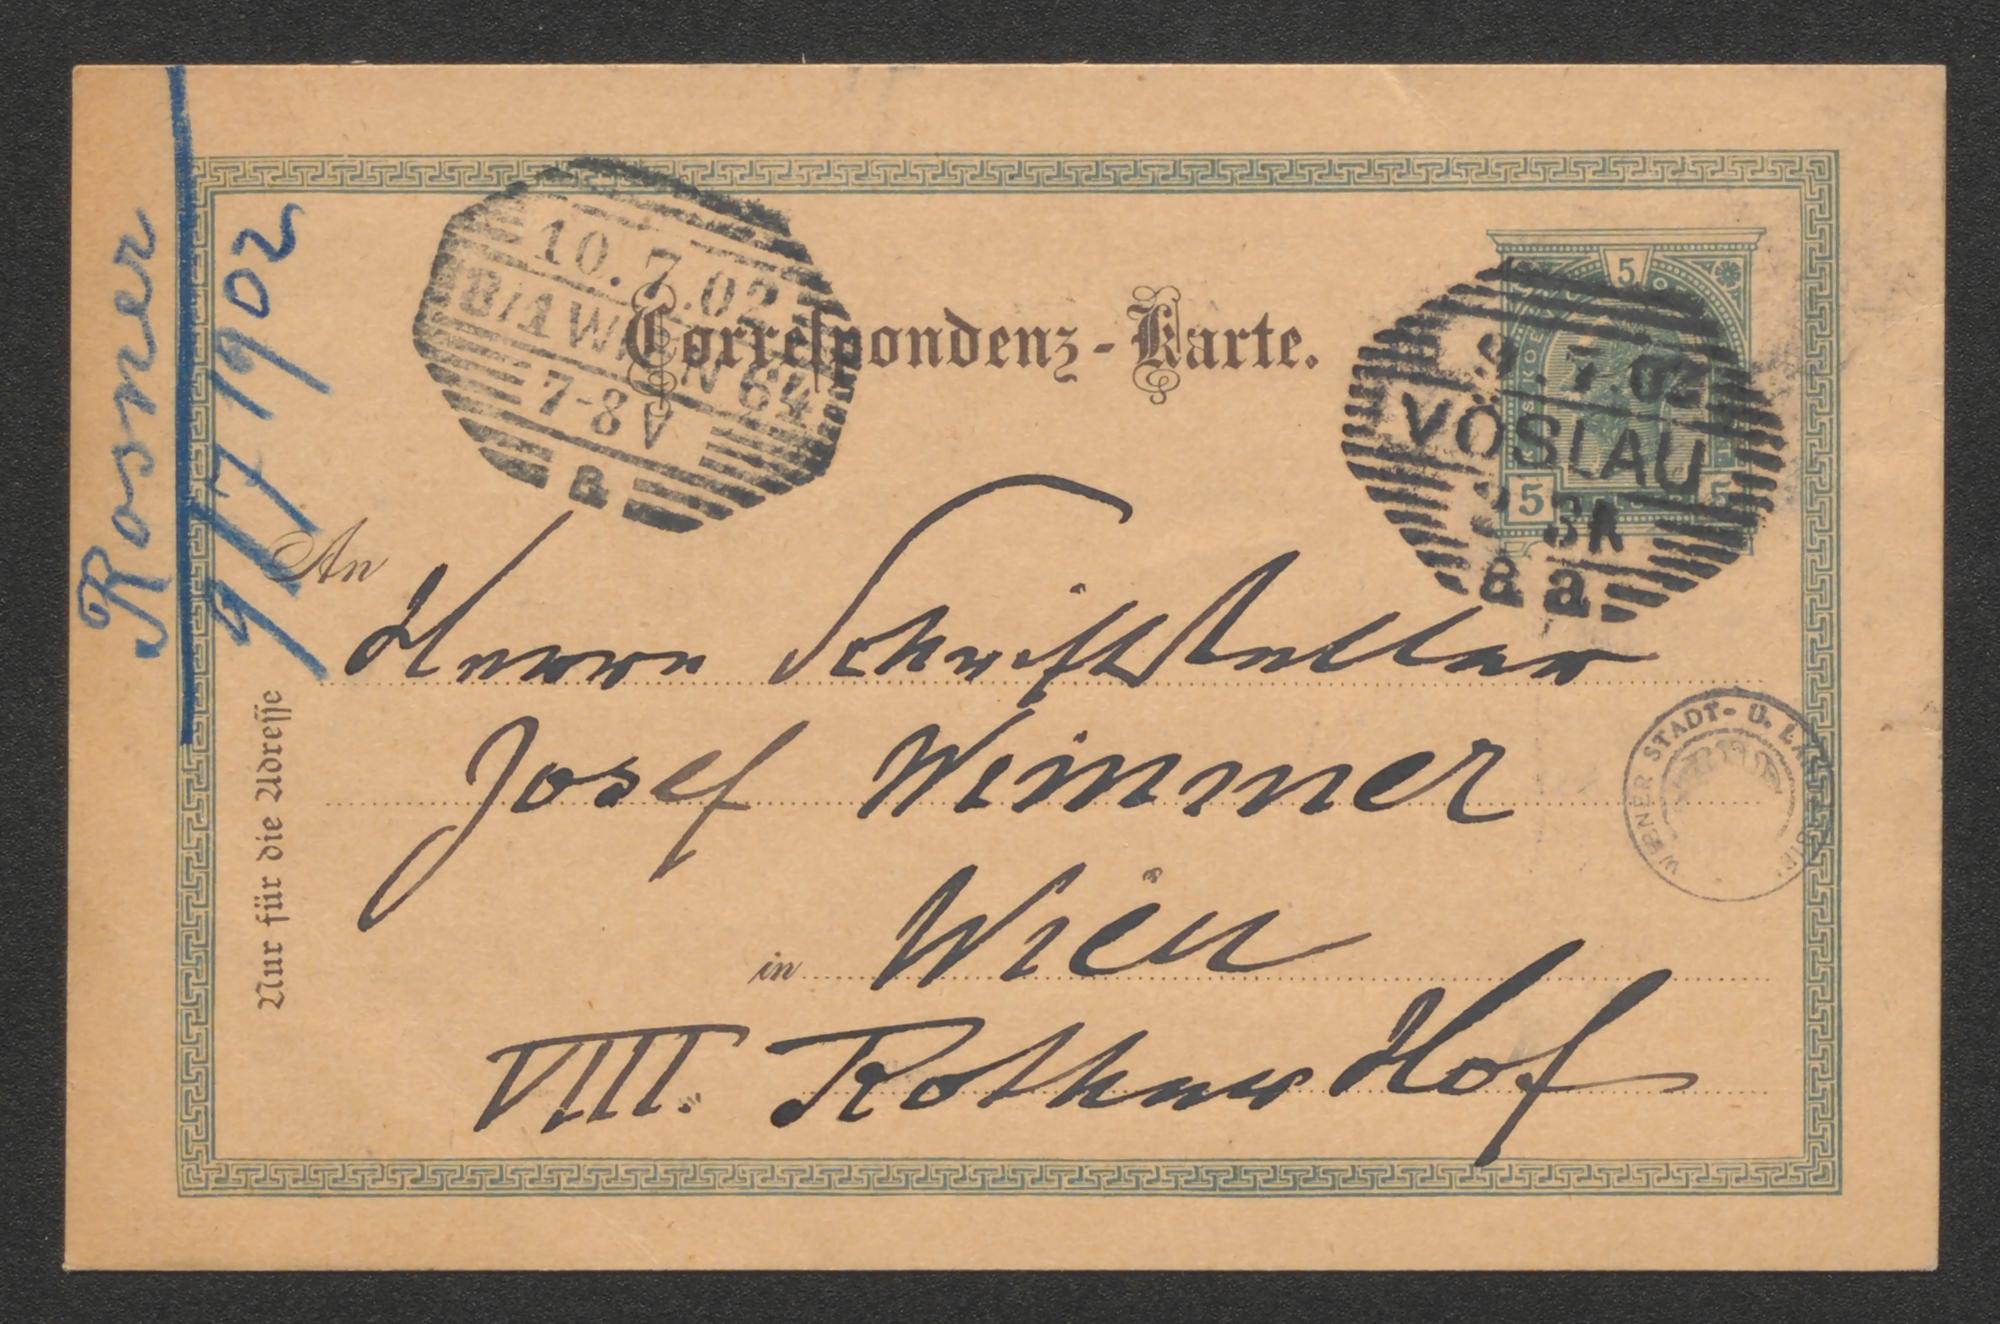 Rosner
9/7 1902
10.7.02
8/1 WIEN 64
7-8V
a
Correspondenz-Karte.
5
5
5
9.7.02
VÖSLAU
a a
An
Herrn Schriftsteller
Josef Wimmer
in Wien
VIII. Rother Hof
Nur für die Adresse
WIENER STADT- U.